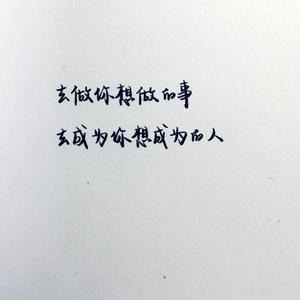 去做你想做的事
去成为你想成为的人